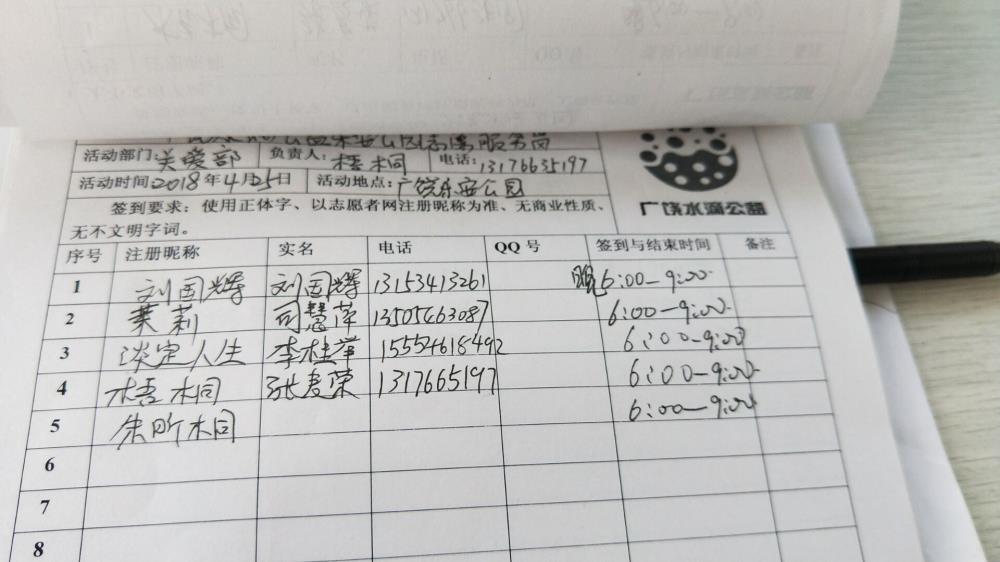 服务岗
活动部门:关爱部 负责人:梧桐 电话:13176635197
活动时间2018年4月25日 活动地点:广饶乐安公园
签到要求:使用正体字、以志愿者网注册昵称为准、无商业性质、
无不文明字词。
广饶水滴公益
序号 注册昵称 实名 电话 QQ号 签到与结束时间 备注
1 刘国辉 刘国辉 13153413261 晚6:00-9:00
2 茉莉 司慧萍 13505463087 6:00-9:00
3 淡定人生 李桂苹 15554618492 6:00-9:00
4 梧桐 张麦荣 1317665197 6:00-9:00
5 朱昕桐 6:00-9:00
6
7
8